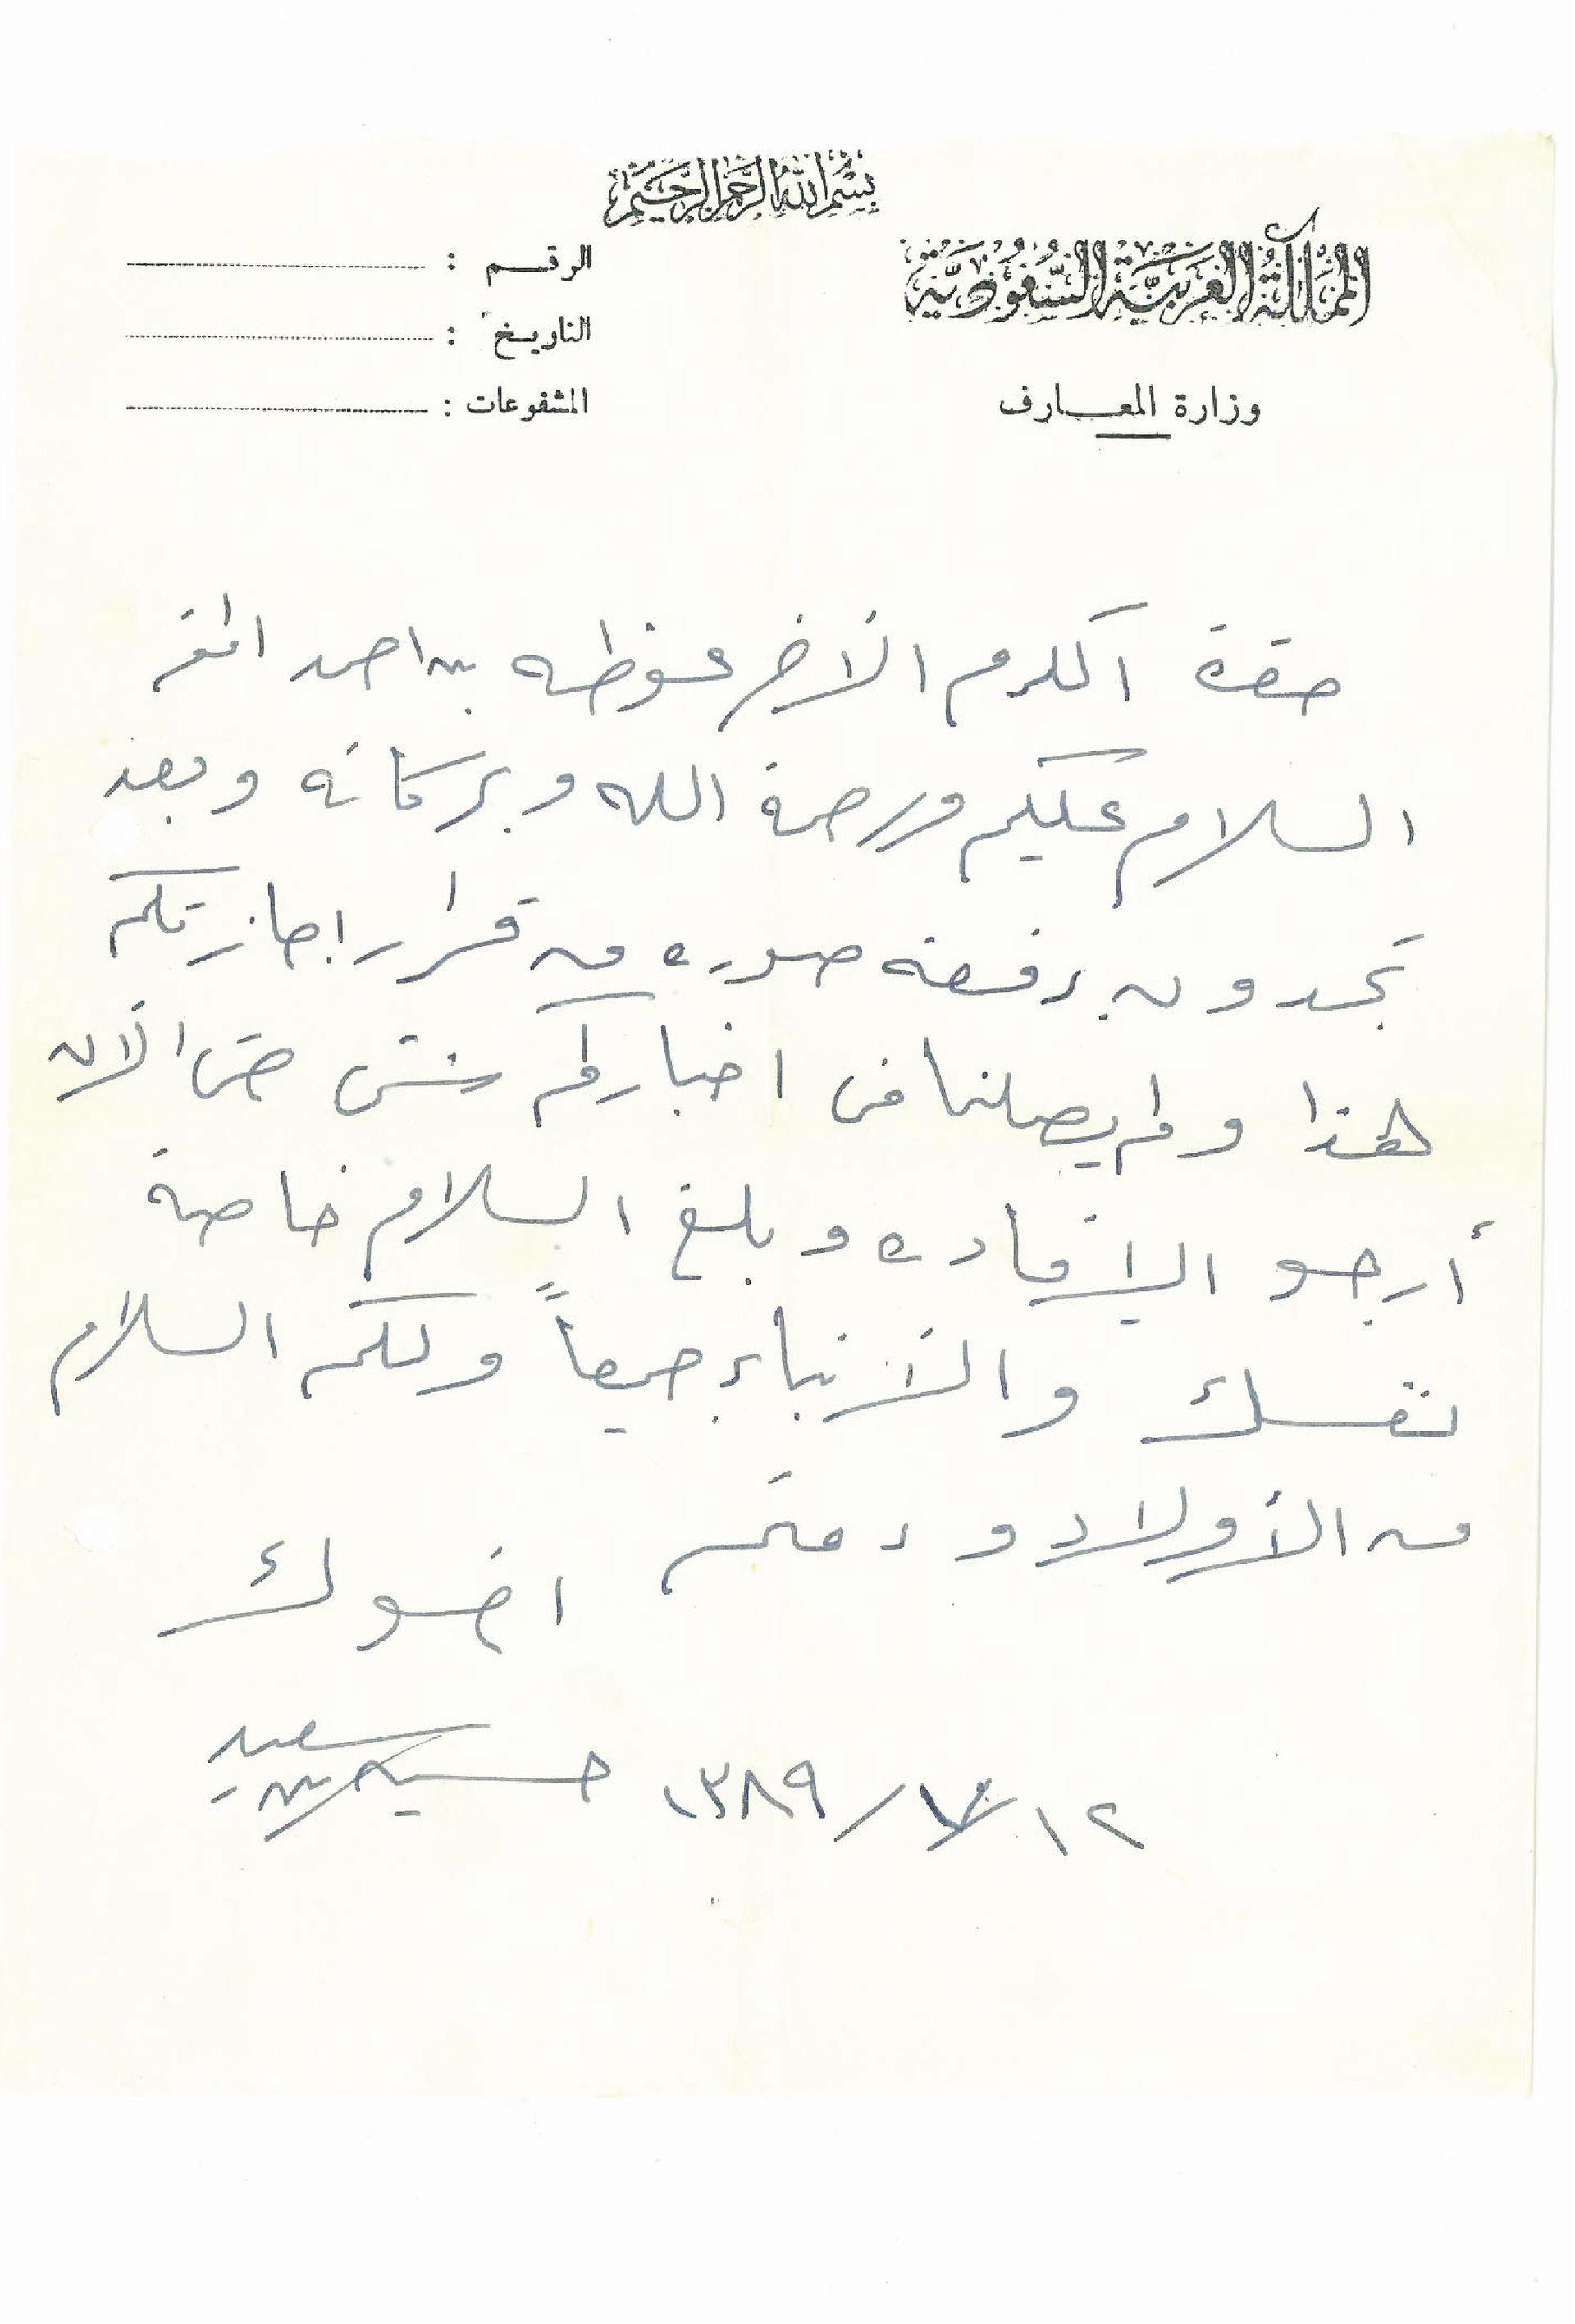 بسم الله الرحمن الرحيم
المملكة العربية السعودية
وزارة المعارف
الرقم :
التاريخ :
المشفوعات :
حضرة المكرم الأخ عوظه بن احمد
السلام عليكم ورحمة الله وبركاته وبعد
تجدون برفقه صوره من قرار اجازتكم
هذا ولم يصلنا من اخباركم شئ حتى الآن
أرجو الافاده وبلغ السلام خاصة
نفسك والأنباء جميعاً ولكم السلام
من الأولاد ودمتم
اخوك
حسين سعيد
١٢/٧/١٣٨٩